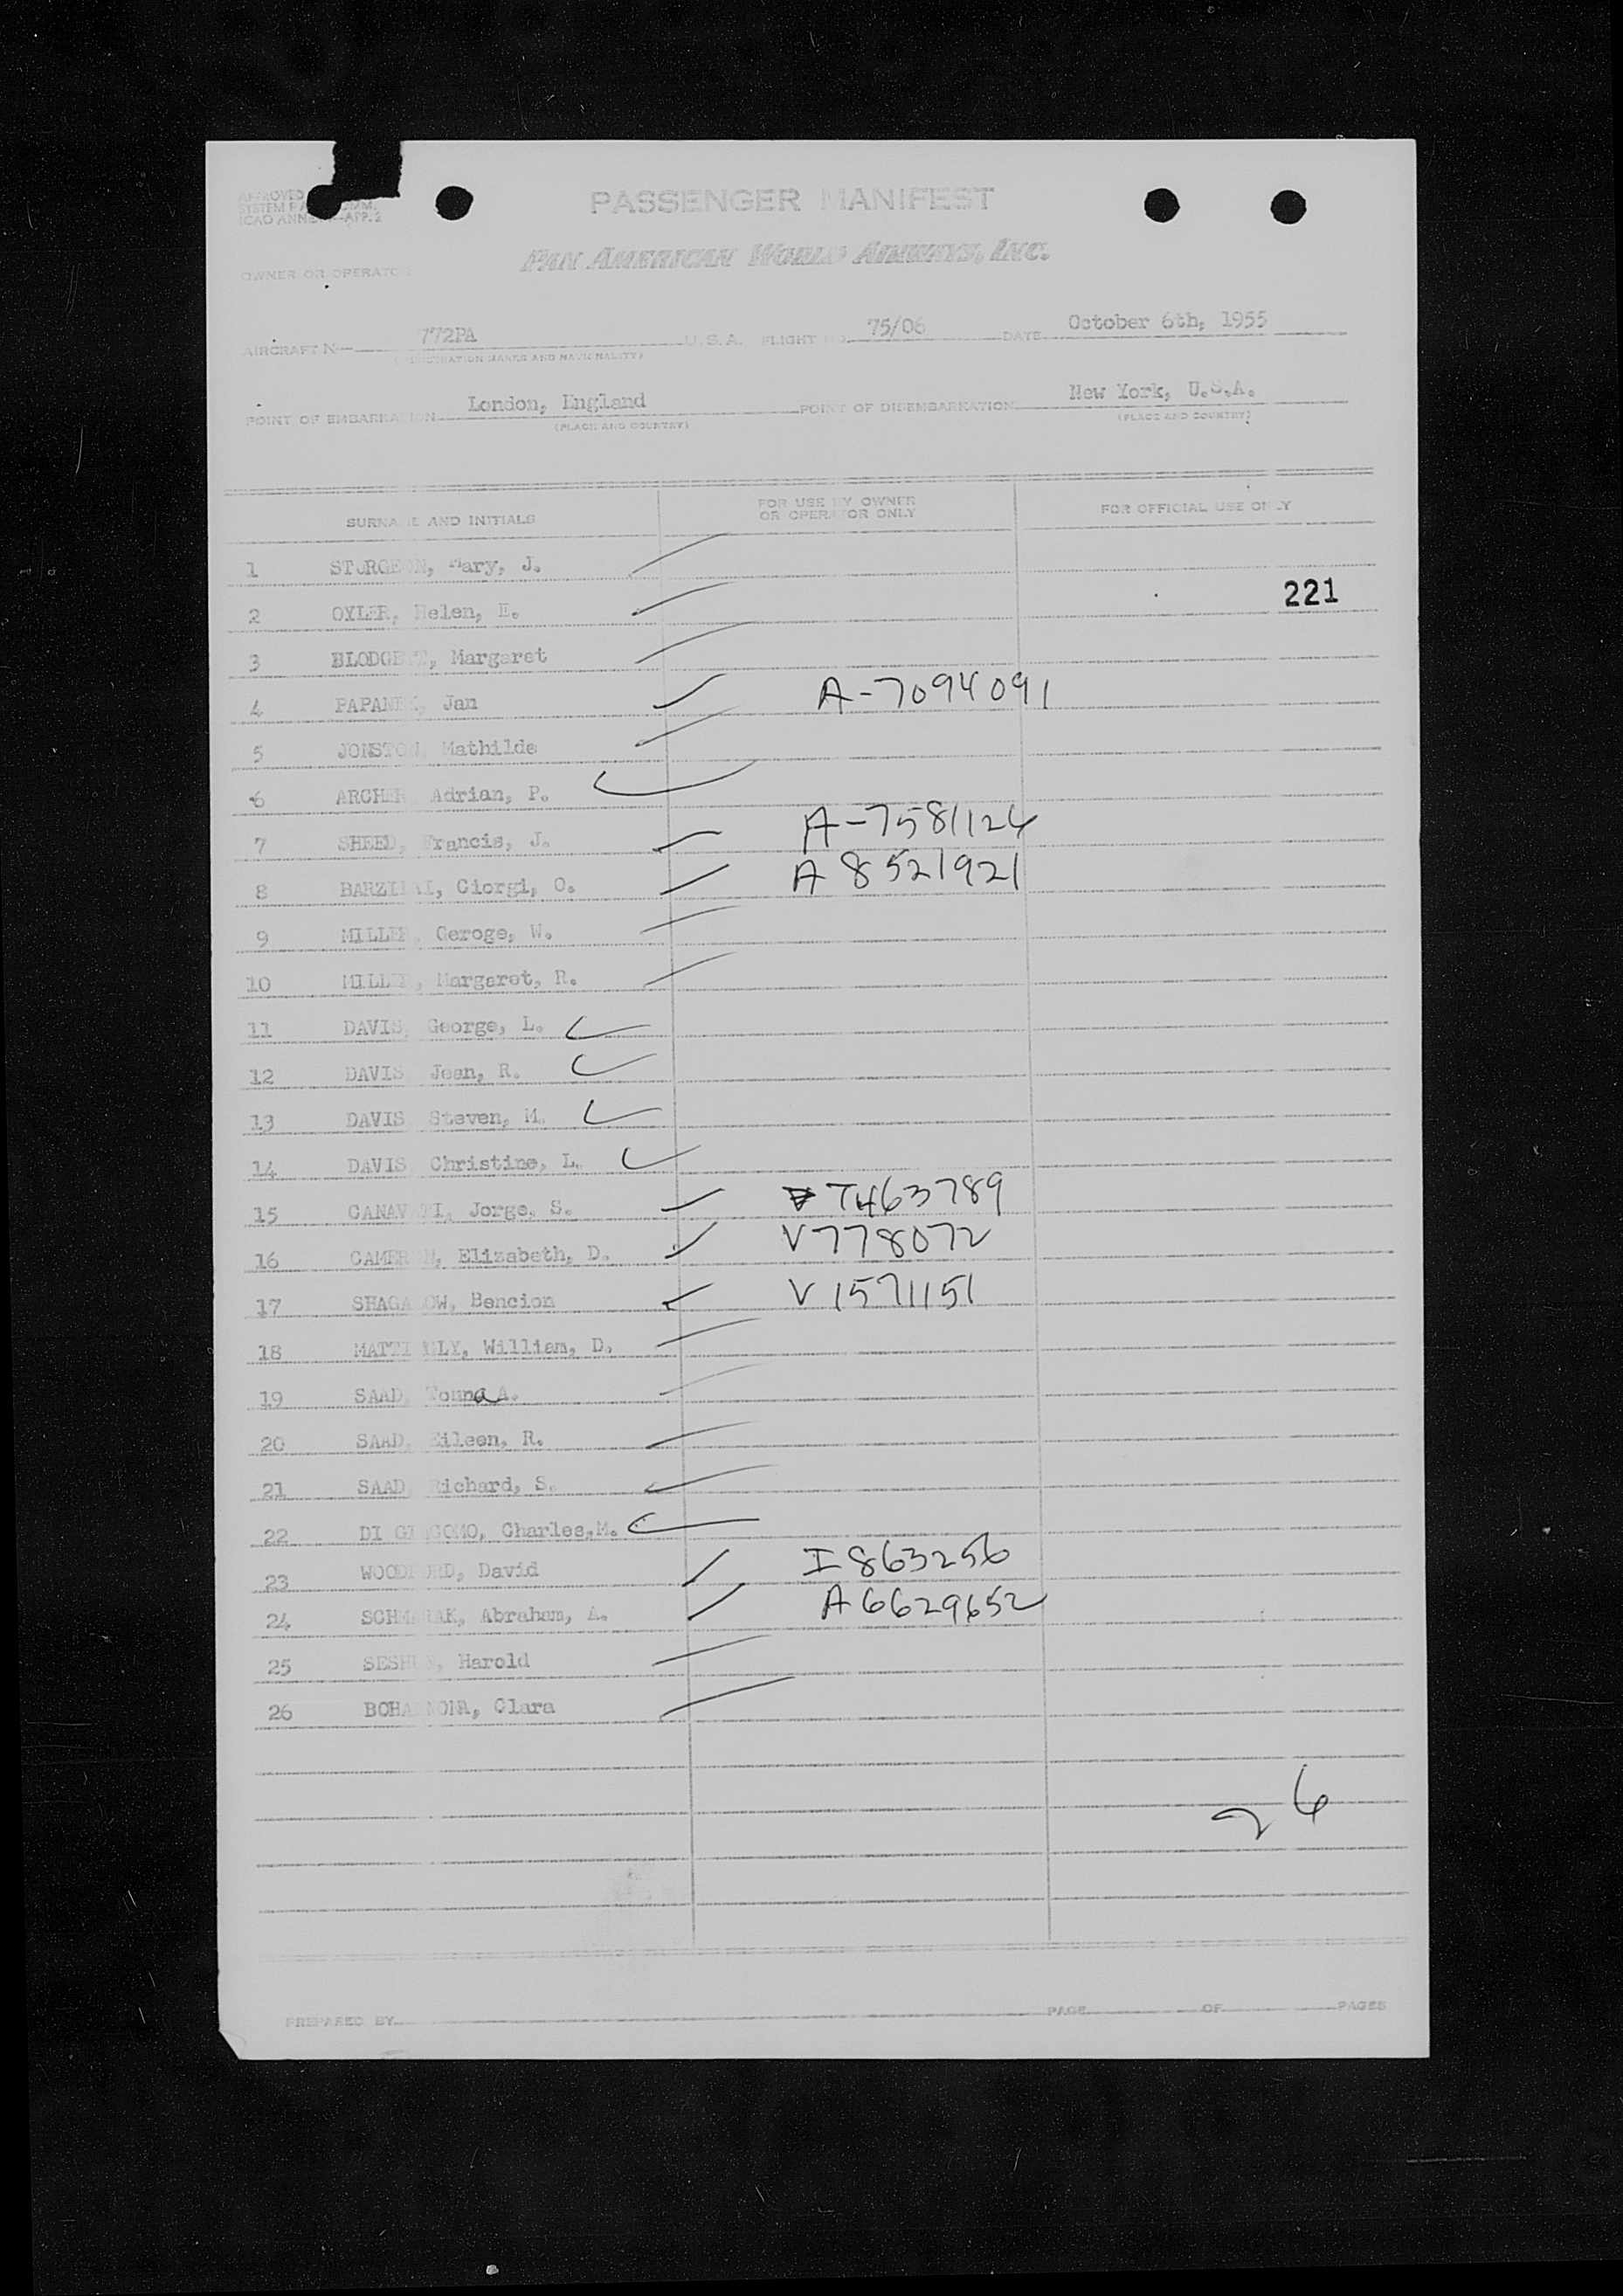 PASSENGER MANIFEST
PAN AMERICAN WORLD AIRWAYS, INC.
OWNER OR OPERATOR
AIRCRAFT N— 772PA U.S.A. FLIGHT NO. 75/06 DATE October 6th, 1955
POINT OF EMBARKATION London, England POINT OF DISEMBARKATION New York, U.S.A.
(PLACE AND COUNTRY) (PLACE AND COUNTRY)
SURNAME AND INITIALS FOR USE BY OWNER OR OPERATOR ONLY FOR OFFICIAL USE ONLY
1 STURGEON, Mary, J.
221
2 OYLER, Helen, E.
3 BLODGETT, Margaret
4 PAPANEK, Jan A-7094091
5 JONSTON, Mathilde
6 ARCHER, Adrian, P.
7 SHEED, Francis, J. A-7581124
8 BARZILAI, Giorgi, O. A 8521921
9 MILLER, Geroge, W.
10 MILLER, Margaret, R.
11 DAVIS, George, L.
12 DAVIS Jean, R.
13 DAVIS Steven, M.
14 DAVIS Christine, L.
15 CANAVATI, Jorge. S. T463789
16 CAMERON, Elizabeth, D. V778072
17 SHAGALOW, Bencion V 1571151
18 MATTINGLY, William, D.
19 SAAD, Touna A.
20 SAAD, Eileen, R.
21 SAAD Richard, S.
22 DI GIAGOMO, Charles,M.
23 WOODFORD, David I 863256
24 Abraham, A. A6629652
25 Harold
26 Clara
26
PREPARED BY PAGE OF PAGES